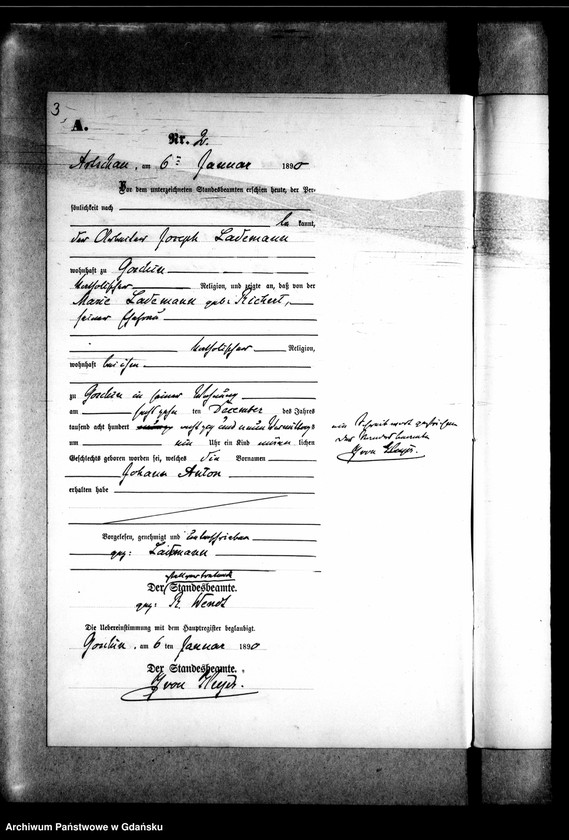 3
A.
Nr. 2.
Artschau, am 6ten Januar 1890
Vor dem unterzeichneten Standesbeamten erschien heute, der Per-
sönlichkeit nach
be kannt,
der Arbeiter Joseph Lademann
wohnhaft zu Goschin
katholischer Religion, und zeigte an, daß von der
Marie Lademann geb: Richert,
seiner Ehefrau
katholischer Religion,
wohnhaft bei ihm
zu Goschin in seiner Wohnung
am sechszehn ten December des Jahres
tausend acht hundert achtzig und neun Vormittags
um neun Uhr ein Kind männ lichen
Geschlechts geboren worden sei, welches die Vornamen
Johann Anton
erhalten habe
Vorgelesen, genehmigt und unterschrieben
gez: Lademann
stellvertretende
Der Standesbeamte.
gez: R. Wendt
Die Uebereinstimmung mit dem Hauptregister beglaubigt.
Goschin, am 6 ten Januar 1890
Der Standesbeamte.
von Heyer.
ein Druckwort gestrichen
Der Standesbeamte
von Heyer.
Archiwum Państwowe w Gdańsku